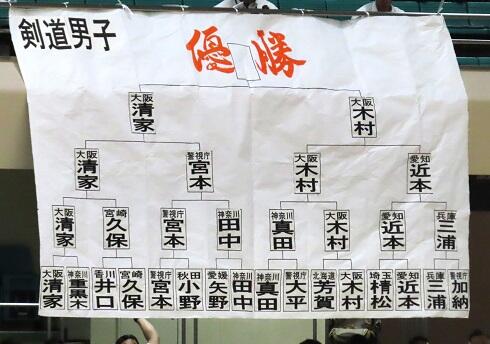 剣道男子
優勝
大阪 清家
大阪 木村
大阪 清家
警視庁 宮本
大阪 木村
愛知 近本
大阪 清家
宮崎 久保
警視庁 宮本
神奈川 田中
神奈川 真田
大阪 木村
愛知 近本
兵庫 三浦
大阪 清家
神奈川 重黒木
香川 井口
宮崎 久保
警視庁 宮本
秋田 小野
愛媛 矢野
神奈川 田中
神奈川 真田
警視庁 大平
北海道 芳賀
大阪 木村
埼玉 棈松
愛知 近本
兵庫 三浦
警視庁 加納